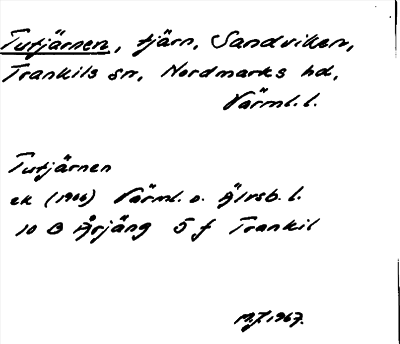 Tutjärnen, tjärn, Sandviken,
Trankils sn, Nordmarks hd,
Värml. l.
Tutjärnen
ek (1966) Värml. o. Älvsb. l.
10 B Årjäng 5 f Trankil
1967.